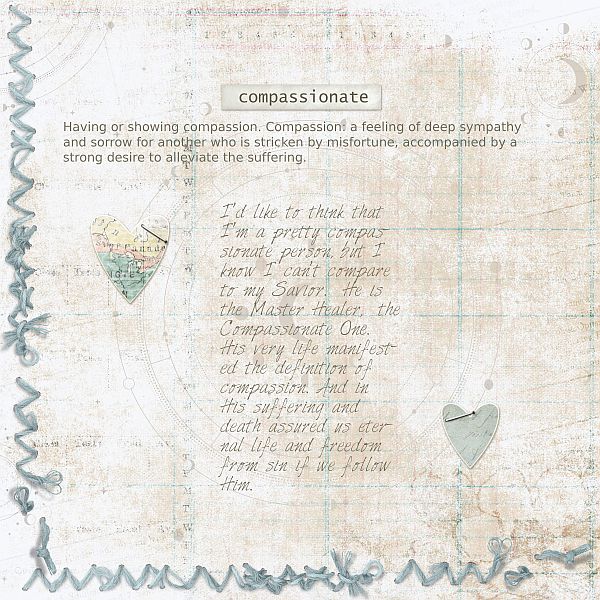 compassionate
Having or showing compassion. Compassion: a feeling of deep sympathy
and sorrow for another who is stricken by misfortune, accompanied by a
strong desire to alleviate the suffering.
I'd like to think that
I'm a pretty compas-
sionate person, but I
know I can't compare
to my Savior. He is
the Master Healer, the
Compassionate One.
His very life manifest-
ed the definition of
compassion. And in
His suffering and
death assured us eter-
nal life and freedom
from sin if we follow
Him.